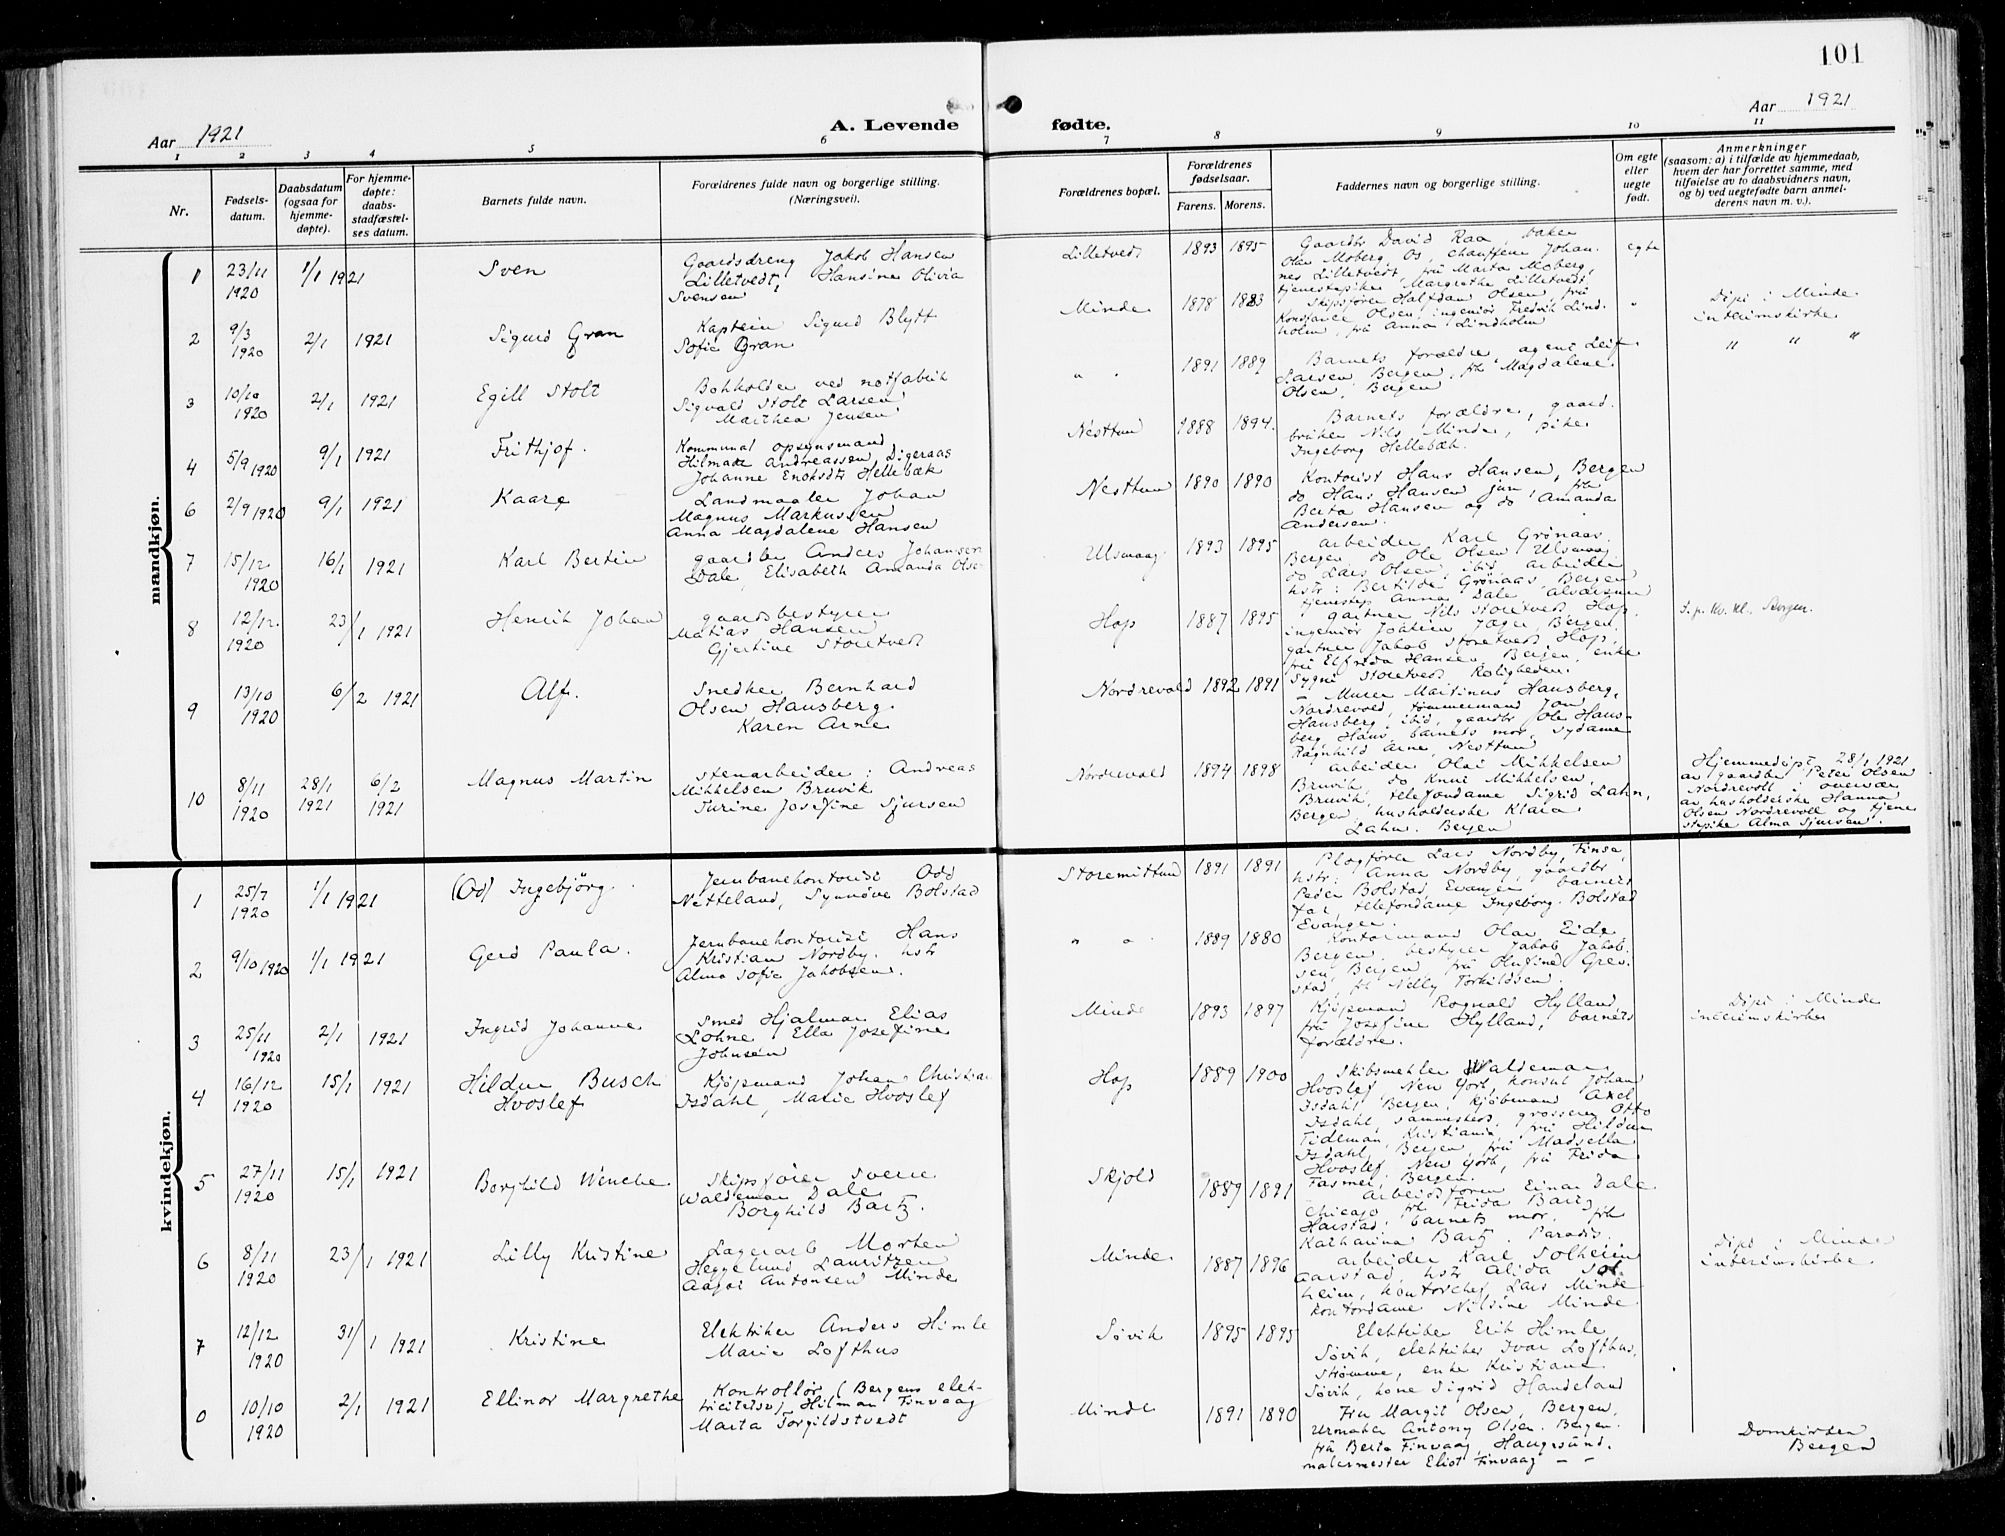 101
Aar 1921
A. Levende fødte.
Aar 1921
1 2 3 4 5 6 7 8 9 10 11
Nr.
Fødsels-
datum.
Daabsdatum
(ogsaa for
hjemme-
døpte).
For hjemme-
døpte:
daabs-
stadfæstel-
ses datum.
Barnets fulde navn.
Forældrenes fulde navn og borgerlige stilling.
(Næringsvei).
Forældrenes bopæl.
Forældrenes
fødselsaar.
Farens. Morens.
Faddernes navn og borgerlige stilling.
Om egte
eller
uegte
født.
Anmerkninger
(saasom: a) i tilfælde av hjemmedaab,
hvem der har forrettet samme, med
tilføielse av to daabsvidners navn,
og b) ved uegtefødte barn anmel-
derens navn m. v.).
mandkjøn.
1
23/11
1920
1/1 1921
Sven
Gaardsdreng Jakob Hansen
Lilletvedt, Hansine Olivia
Svensen
Lilletvedt
1893 1895
Gaardbr David Raa, baker
Olav Moberg, Os, chauffeur Johan-
nes Lilletvedt, fru Marta Moberg,
tjenestepike Margrethe Lilletvedt
egte
2
9/3
1920
2/1 1921
Sigurd Gran
Kaptein Sigurd Blytt
Sofie Gran
Minde
1878 1883
Skipsfører Halfdan Olsen, fru
Konstance Olsen, ingeniør Fredrik Lind-
holm, fru Anna Lindholm
"
Døpt i Minde
interimskirke
3
10/10
1920
2/1 1921
Egill Stolt
Bokholder ved notfabrik
Sigvald Stolt Larsen
Marthea Jensen
" "
1891 1889
Barnets forældre, agent Leif
Larsen, Bergen, frk Magdalene
Olsen, Bergen
" " "
4
5/9 1920
9/1 1921
Frithjof.
Kommunal opsynsmand
Hilmar Andreassen, Digeraas
Johanne Enoksdtr Hellebæk
Nesttun
1888 1894.
Barnets forældre, gaard-
bruker Nils Minde, pike
Ingeborg Hellebæk.
6
2/9 1920
9/1 1921
Kaare
Landmaaler Johan
Magnus Markussen
Anna Magdalene Hansen
Nesttun
1890 1890
Kontorist Hans Hansen, Bergen
do Hans Hansen jun, frk
Berta Hansen og do Amanda
Andersen.
7
15/12
1920
16/1 1921
Karl Bertin
gaardbr Anders Johansen
Dale, Elisabeth Amanda Olse-
Ulsmaag
1893 1895
arbeider Karl Grønaas.
Bergen do Ole Olsen Ulsmaag
do Lars Olsen, ibid, arbeider
hstr: Bertilde Grønaas, Bergen
tjenestep Anna Dale
8
12/12.
1920
23/1 1921
Henrik Johan
gaardsbestyrer
Matias Hansen
Gjertine Storetvedt
Hop
1887 1895
gartner Nils Storetvedt, Hop.
ingeniør Joakim Jæger, Bergen,
gartner Jakob Storetvedt, Hop,
fru Elfrida Hansen, Bergen, enke
Sygni Storetvedt Roligheden.
S. p. Kv. kl. Bergen.
9
13/10
1920
6/2 1921
Alf.
Snedker Bernhard
Olsen Hausberg.
Karen Arne
Nordrevold
1892 1891
Murer Martinus Hausberg,
Nordrevold, tømmermand Jon
Hausberg, ibid, gaardbr Ole Haus-
berg Haus, barnets mor, sydame
Ragnhild Arne, Nesttun
10
8/11
1920
28/1
1921
6/2
1921
Magnus Martin
Stenarbeider: Andreas
Mikkelsen Bruvik
Turine Josefine Sjursen
Nordrevold
1894 1898
arbeider Olai Mikkelsen
Bruvik, do Knut Mikkelsen
Bruvik, telefondame Sigrid Lahn,
Bergen, husholderske Klara
Lahn. Bergen
Hjemmedøpt 28/1 1921
av gaardbr Peter Olsen
Nordrevoll i overvær
av husholderske Hanna
Olsen Nordrevoll og tjene
stepike Alma Sjursen.
kvindekjøn.
1
25/7
1920
1/1 1921
(Od) Ingebjörg.
Jernbanekontorist Odd
Netteland, Synnöve Bolstad
Storemittun
1891 1891
Plogfører Lars Nordby, Finse,
hstr: Anna Nordby, gaardbr
Peder Bolstad, Evanger barnets
far, telefondame Ingeborg. Bolstad
Evanger.
2
9/10 1920
1/1 1921
Gerd Paula.
Jernbanekontorist Hans
Kristian Nordby. hstr
Alma Sofie Jakobsen.
" "
1889 1880
Kontormand Olav Eide,
Bergen, bestyrer Jakob Jakob-
sen, Bergen, fru Olufine Gres-
stad, frk Nelly Torkildsen.
3
25/11
1920
2/1 1921
Ingrid Johanne
Smed Hjalmar Elias
Lohne Ella Josefine
Johnsen
Minde
1893 1897
Kjøpmand Rognald Hylland
fru Josefine Hylland, barnets
forældre.
Døpt i Minde
interimskirke
4
16/12
1920
15/1 1921
Hildur Busch
Hvoslef
Kjøpmand Johan Christian
Isdahl, Marie Hvoslef
Hop
1889 1900
Skibsmekler Waldemar
Hvoslef New York, konsul Johan
Isdahl, Bergen, kjøbmand Axel
Isdahl, sammesteds, grosserer Otto
Tideman, Kristiania, fru Hildur
Isdahl, Bergen, fru Madsella
Hvoslef, New York, fru Frida
Fasmer, Bergen.
5
27/11
1920
15/1 1921
Borghild Wenche
Skipsfører Sverre
Waldemar Dale
Borghild Bartz.
Skjold
1889 1891
arbeidsform Einar Dale
Chicago frk Frida Bartz
Harstad. barnets mor, frk
Katharina Bartz. Paradis.
6
8/11
1920
23/1 1921
Lilly Kristine
Lagerarb Morten
Heggelund Lauritzen
Aagot Antonsen Minde
Minde
1887 1896
arbeider Karl Solheim
Aarstad, hstr Alida Sol-
heim, kontorchef Lars Minde
kontordame Nilsine Minde.
Døpt i Minde
interimskirke.
7
12/12
1920
31/1 1921
Kristine
Elektriker Anders Himle
Marie Lofthus
Søvik
1895 1895
Elektriker Erik Himle
Søvik, elektriker Ivar Lofthus,
Strømme, enke Kristiane
Søvik, kone Sigrid Handeland
0
10/10
1920
2/1 1921
Ellinor Margrethe
Kontrollør (Bergens elek-
tricitetsv) Hilmar Finvaag
Marta Torgildstvedt
Minde
1891 1890
Fru Margit Olsen, Bergen,
Urmaker Antony Olsen. Bergen.
fru Berta Finvaag, Haugesund.
malermester Eliot Finvaag - -
Domkirken
Bergen